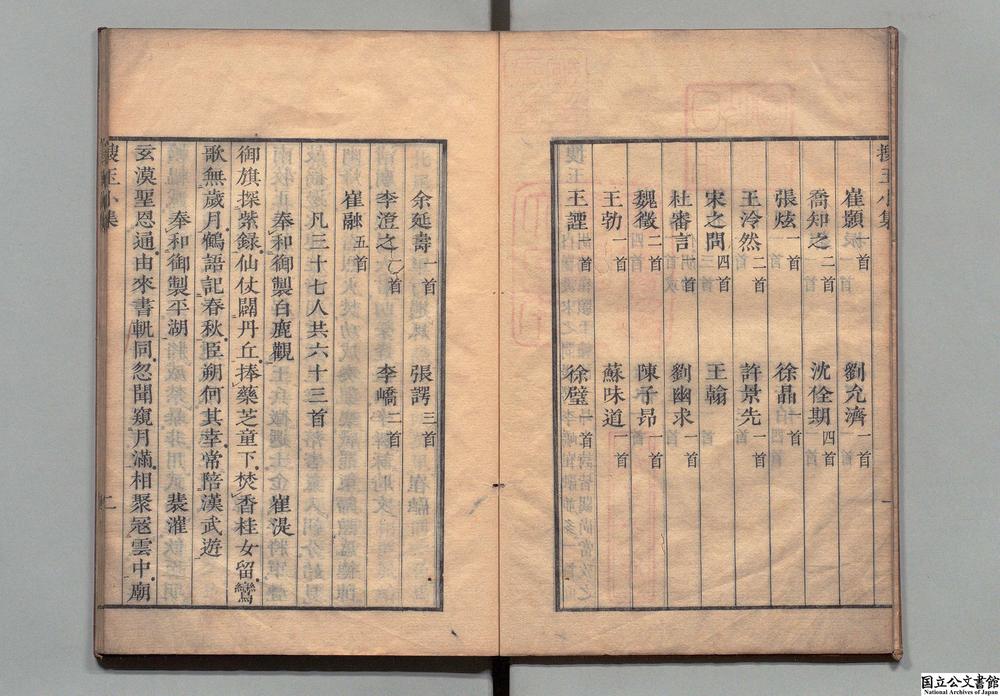 搜玉小集　一
崔顥一首　劉允濟一首
喬知之二首　沈佺期四首
張炫一首　徐晶一首
王泠然二首　許景先一首
宋之問四首　王翰
杜審言　首　劉幽求一首
魏徵二首　陳子昂一首
王勃一首　蘇味道一首
王諲　首　徐璧一首
余延壽一首　張諤三首
李澄之　首　李嶠二首
崔融五首
凡三十七人共六十三首
奉和御製白鹿觀　崔湜
御旗探紫録仙仗闢丹丘捧藥芝童下焚香桂女留鸞
歌無歲月鶴語記春秋臣朔何其幸常陪漢武遊
奉和御製平湖　裴漼
玄漠聖恩通由來書軌同忽聞窺月滿相聚寇雲中廟
搜玉小集　二
国立公文書館
National Archives of Japan